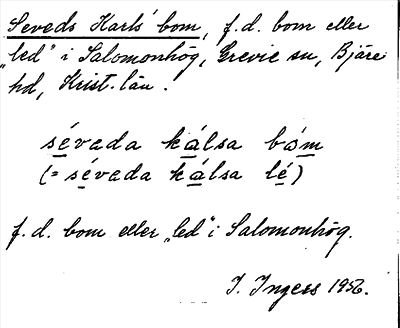 Seveds Karls' bom, f.d. bom eller
„led" i Salomonhög, Grevie sn, Bjäre
hd, Krist. län.
sévada kálsa bóm
(= sévada kálsa lé)
f.d. bom eller „led" i Salomonhög.
I. Ingers 1956.